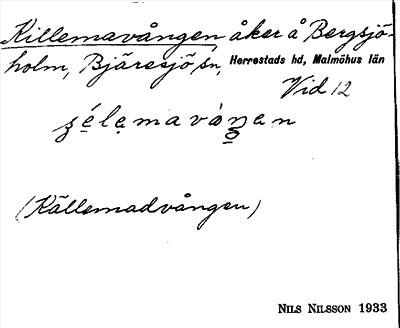 Killemavången åker å Bergsjö-
holm, Bjäresjö sn, Herrestads hd, Malmöhus län
Vid 12
(Källemadvången)
NILS NILSSON 1933